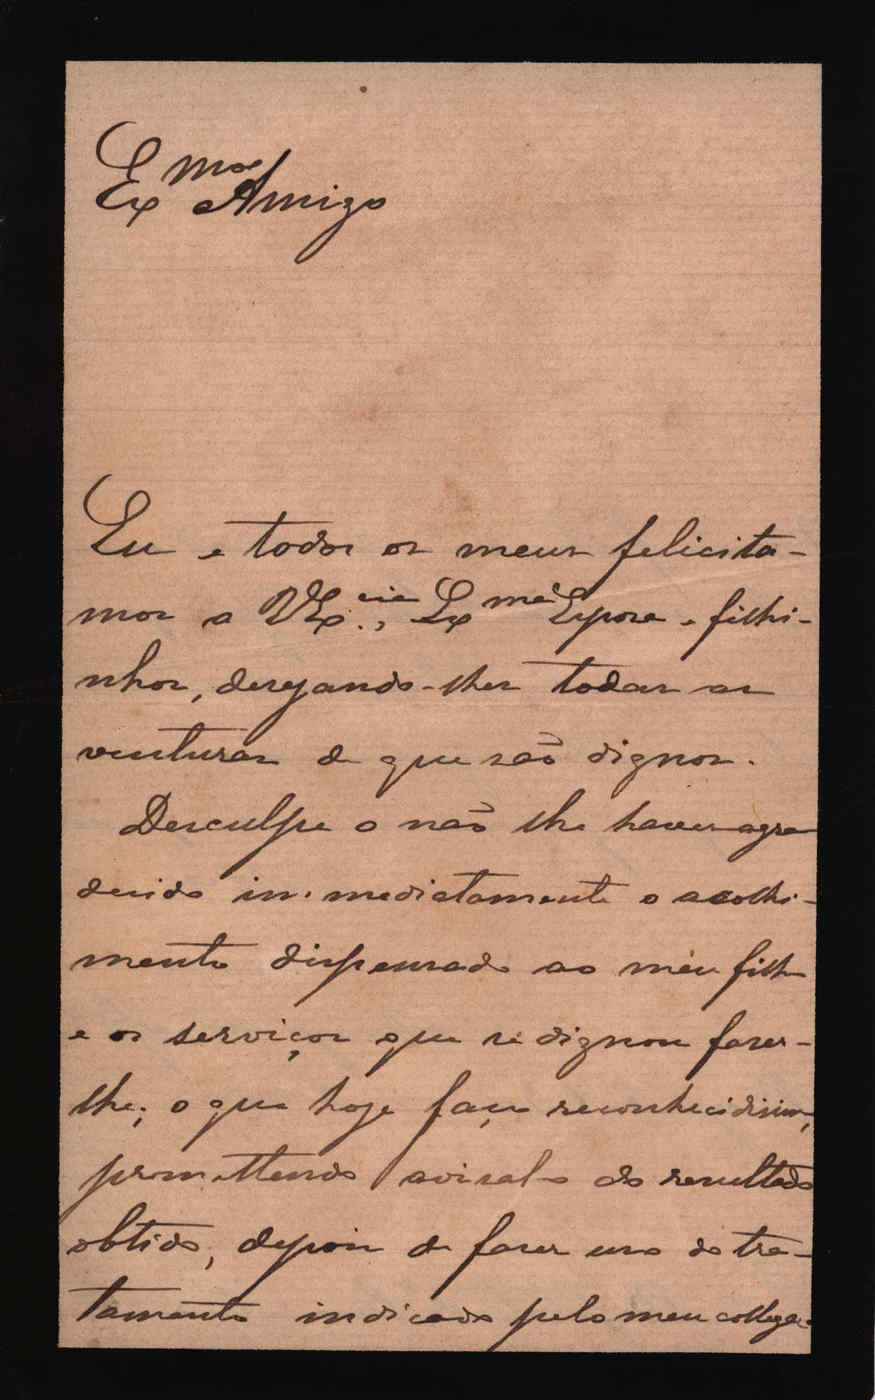 Ex.mo Amigo
Eu e todos os meus felicita-
mos a VEx.cia, Ex.ma Esposa e filhi-
nhos, desejando-lhes todas as
venturas de que são dignos.
Desculpe o não lhe haver agra
decido immediatamente o acolhi-
mento dispensado ao meu filho
e os serviços que se dignou fazer-
lhe; o que hoje faço reconhecidissimo,
promettendo avisal-o do resultado
obtido, depois de fazer uso do tra-
tamento indicado pelo meu collega.